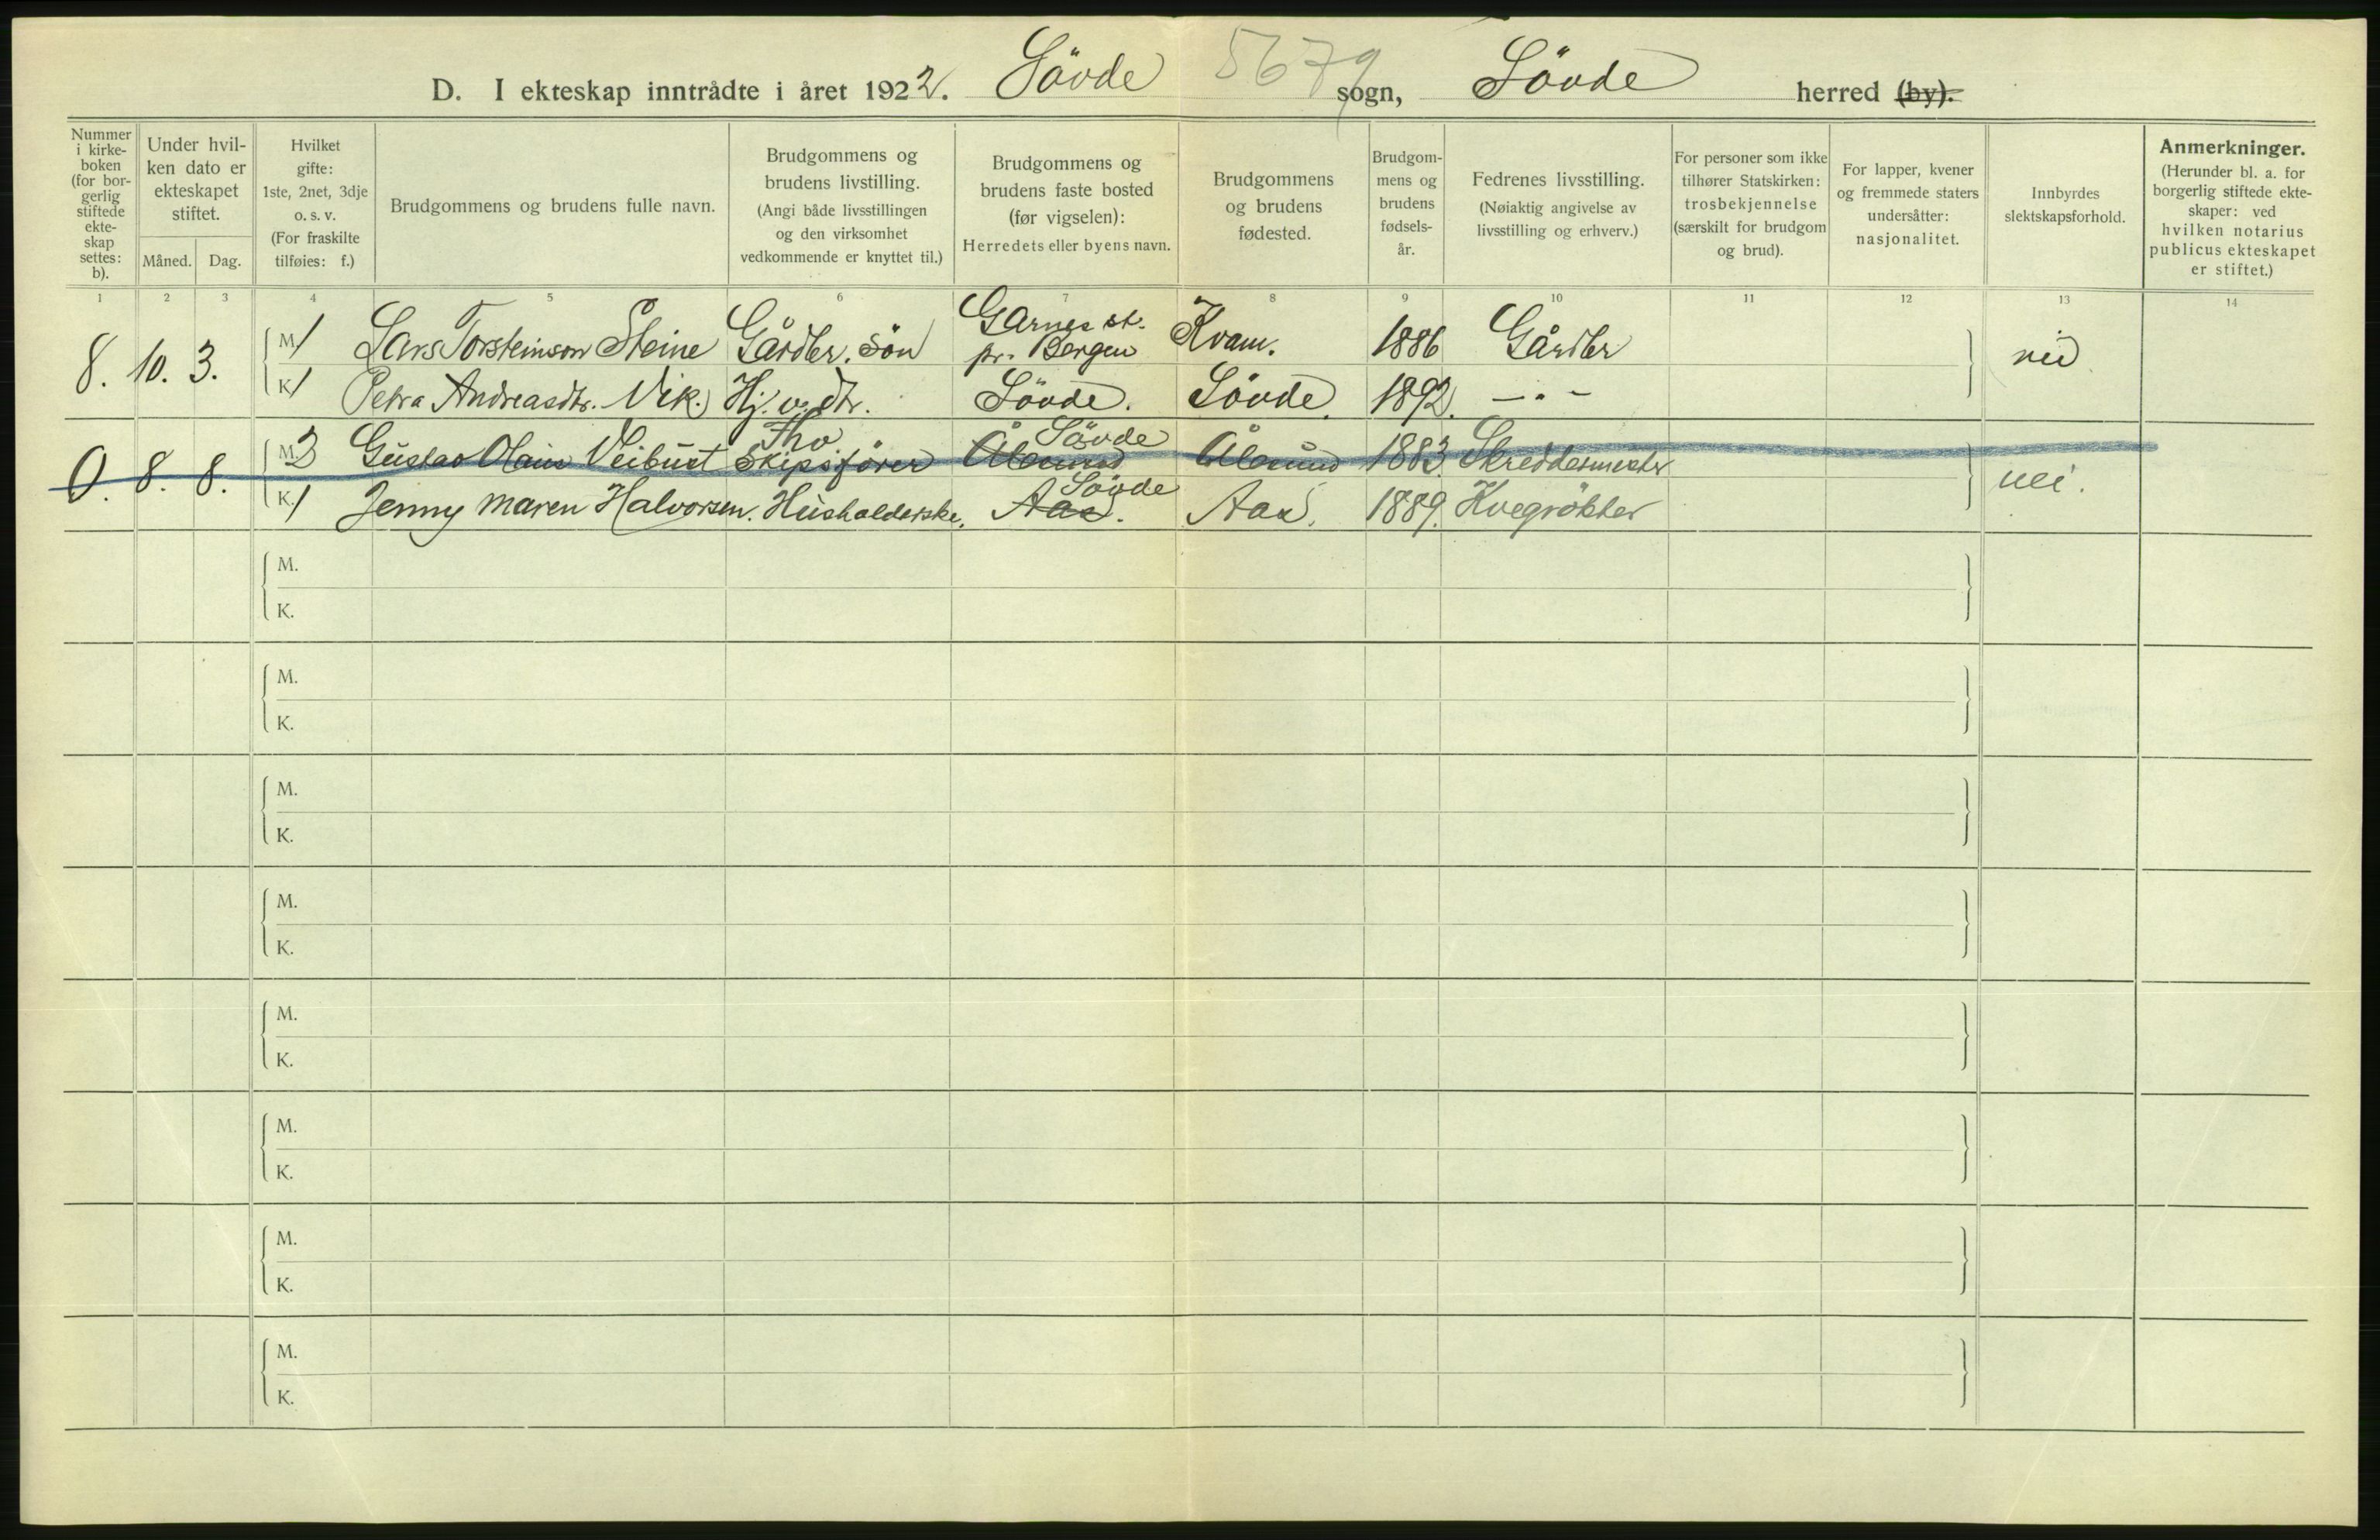 5679
D. I ekteskap inntrådte i året 1922. Sövde sogn, Sövde herred (by).
Nummer i kirkeboken (for borgerlig stiftede ekteskap settes: b).
Under hvilken dato er ekteskapet stiftet.
Måned. Dag.
Hvilket gifte: 1ste, 2net, 3dje o. s. v. (For fraskilte tilføies: f.)
Brudgommens og brudens fulle navn.
Brudgommens og brudens livstilling. (Angi både livsstillingen og den virksomhet vedkommende er knyttet til.)
Brudgommens og brudens faste bosted (før vigselen): Herredets eller byens navn.
Brudgommens og brudens fødested.
Brudgommens og brudens fødselsår.
Fedrenes livsstilling. (Nøiaktig angivelse av livsstilling og erhverv.)
For personer som ikke tilhører Statskirken: trosbekjennelse (særskilt for brudgom og brud).
For lapper, kvener og fremmede staters undersåtter: nasjonalitet.
Innbyrdes slektskapsforhold.
Anmerkninger. (Herunder bl. a. for borgerlig stiftede ekteskaper: ved hvilken notarius publicus ekteskapet er stiftet.)
1 2 3 4 5 6 7 8 9 10 11 12 13 14
8. 10. 3. M. 1 Lars Torsteinson Steine Gårdbr. sön Garnes st. pr. Bergen Kvam. 1886 Gårdbr nei
K. 1 Petra Andreasdtr. Vik. Hj. v. dtr. Sövde. Sövde. 1892. — " —
0. 8. 8. M. 2 Gustav Olaus Veibust Skipsförer Ålesund Sövde Ålesund 1883. Skreddermester nei.
K. 1 Jenny Maren Halvorsen. Husholderske. Aas. Sövde Aas. 1889. Kvegrökter
M.
K.
M.
K.
M.
K.
M.
K.
M.
K.
M.
K.
M.
K.
M.
K.